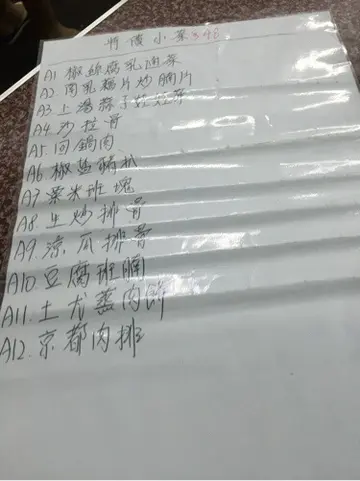 特價小菜 $48
A1 椒絲腐乳油菜
A2. 南乳藕片炒腩片
A3 上湯蒜子
A4 沙拉骨
A5 回鍋肉
A6 椒鹽豬扒
A7 粟米班塊
A8 生炒排骨
A9. 涼瓜排骨
A10 豆腐班腩
A11. 土尤蒸肉餅
A12. 京都肉排